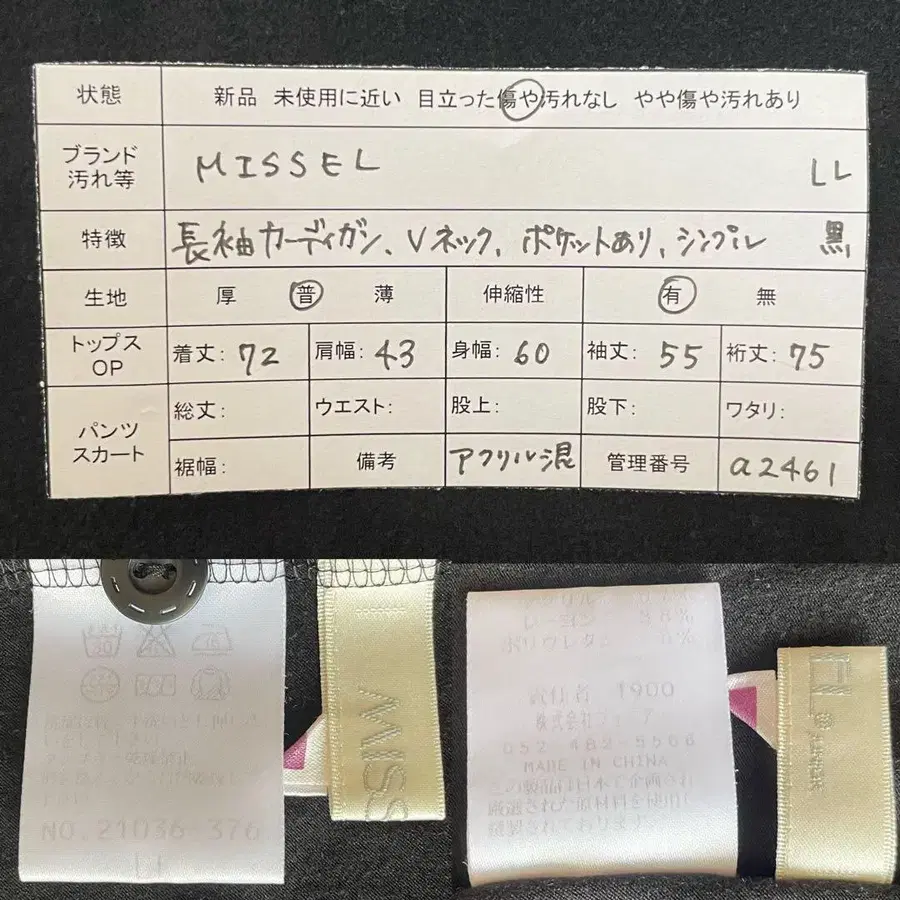 状態 新品 未使用に近い 目立った傷や汚れなし やや傷や汚れあり
ブランド
汚れ等 MISSEL LL
特徴 長袖カーディガン、Vネック、ポケットあり、シンプル 黒
生地 厚 普 薄 伸縮性 有 無
トップス
OP 着丈: 72 肩幅: 43 身幅: 60 袖丈: 55 裄丈: 75
パンツ
スカート 総丈: ウエスト: 股上: 股下: ワタリ:
裾幅: 備考 アクリル混 管理番号 a2461
NO.21036-376
MISS
レーヨン 38%
ポリウレタン
責任者 1900
株式会社
052-482-5566
MADE IN CHINA
この製品は日本で企画され
厳選された原材料を使用し
縫製されております
EL